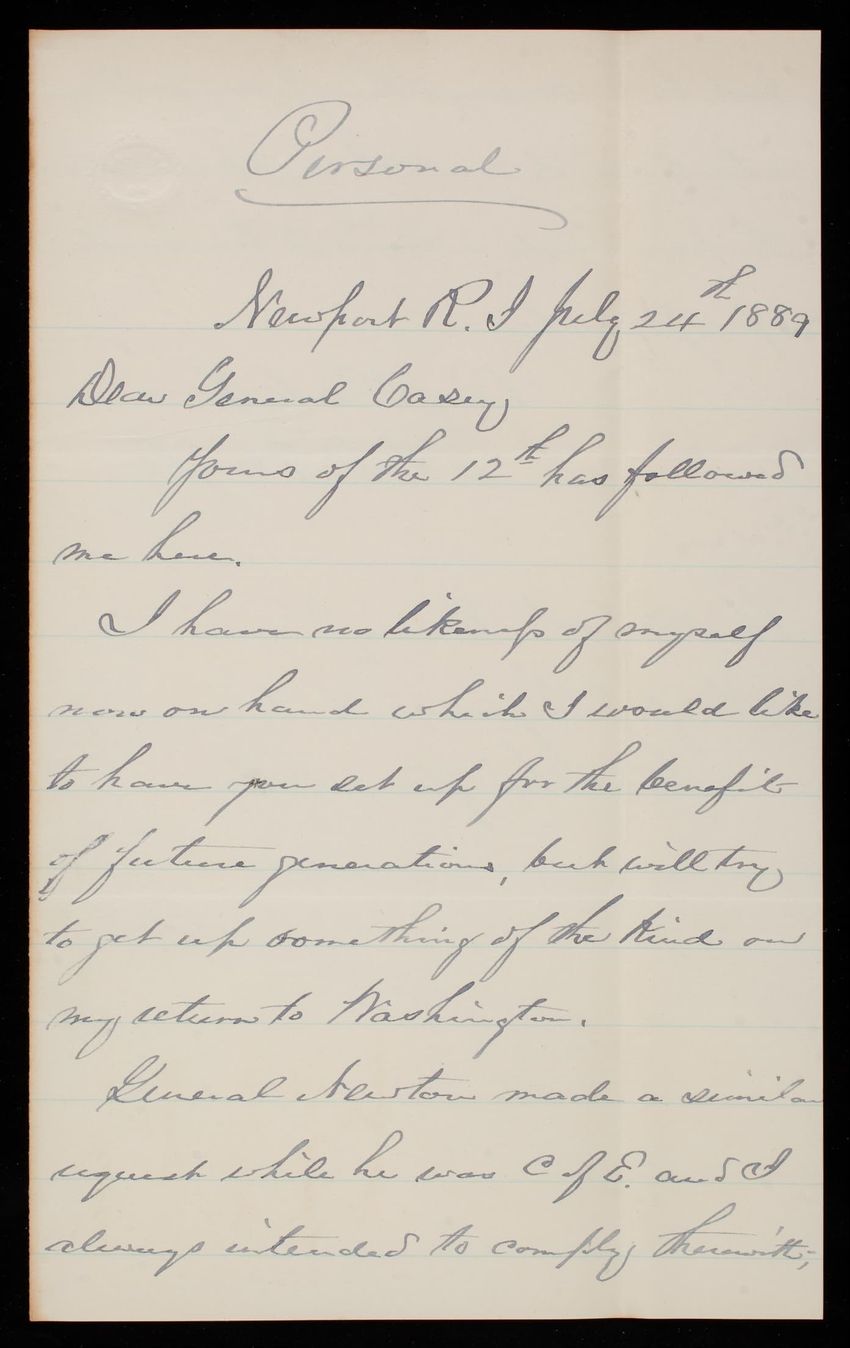 Personal
Newport R. I July 24th 1889
Dear General Casey
Yours of the 12th has followed
me here.
I have no likeness of myself
now on hand which I would like
to have you set up for the benefit
of future generations, but will try
to get up something of the kind on
my return to Washington.
General Newton made a similar
request while he was C of E. and I
always intended to comply therewith;